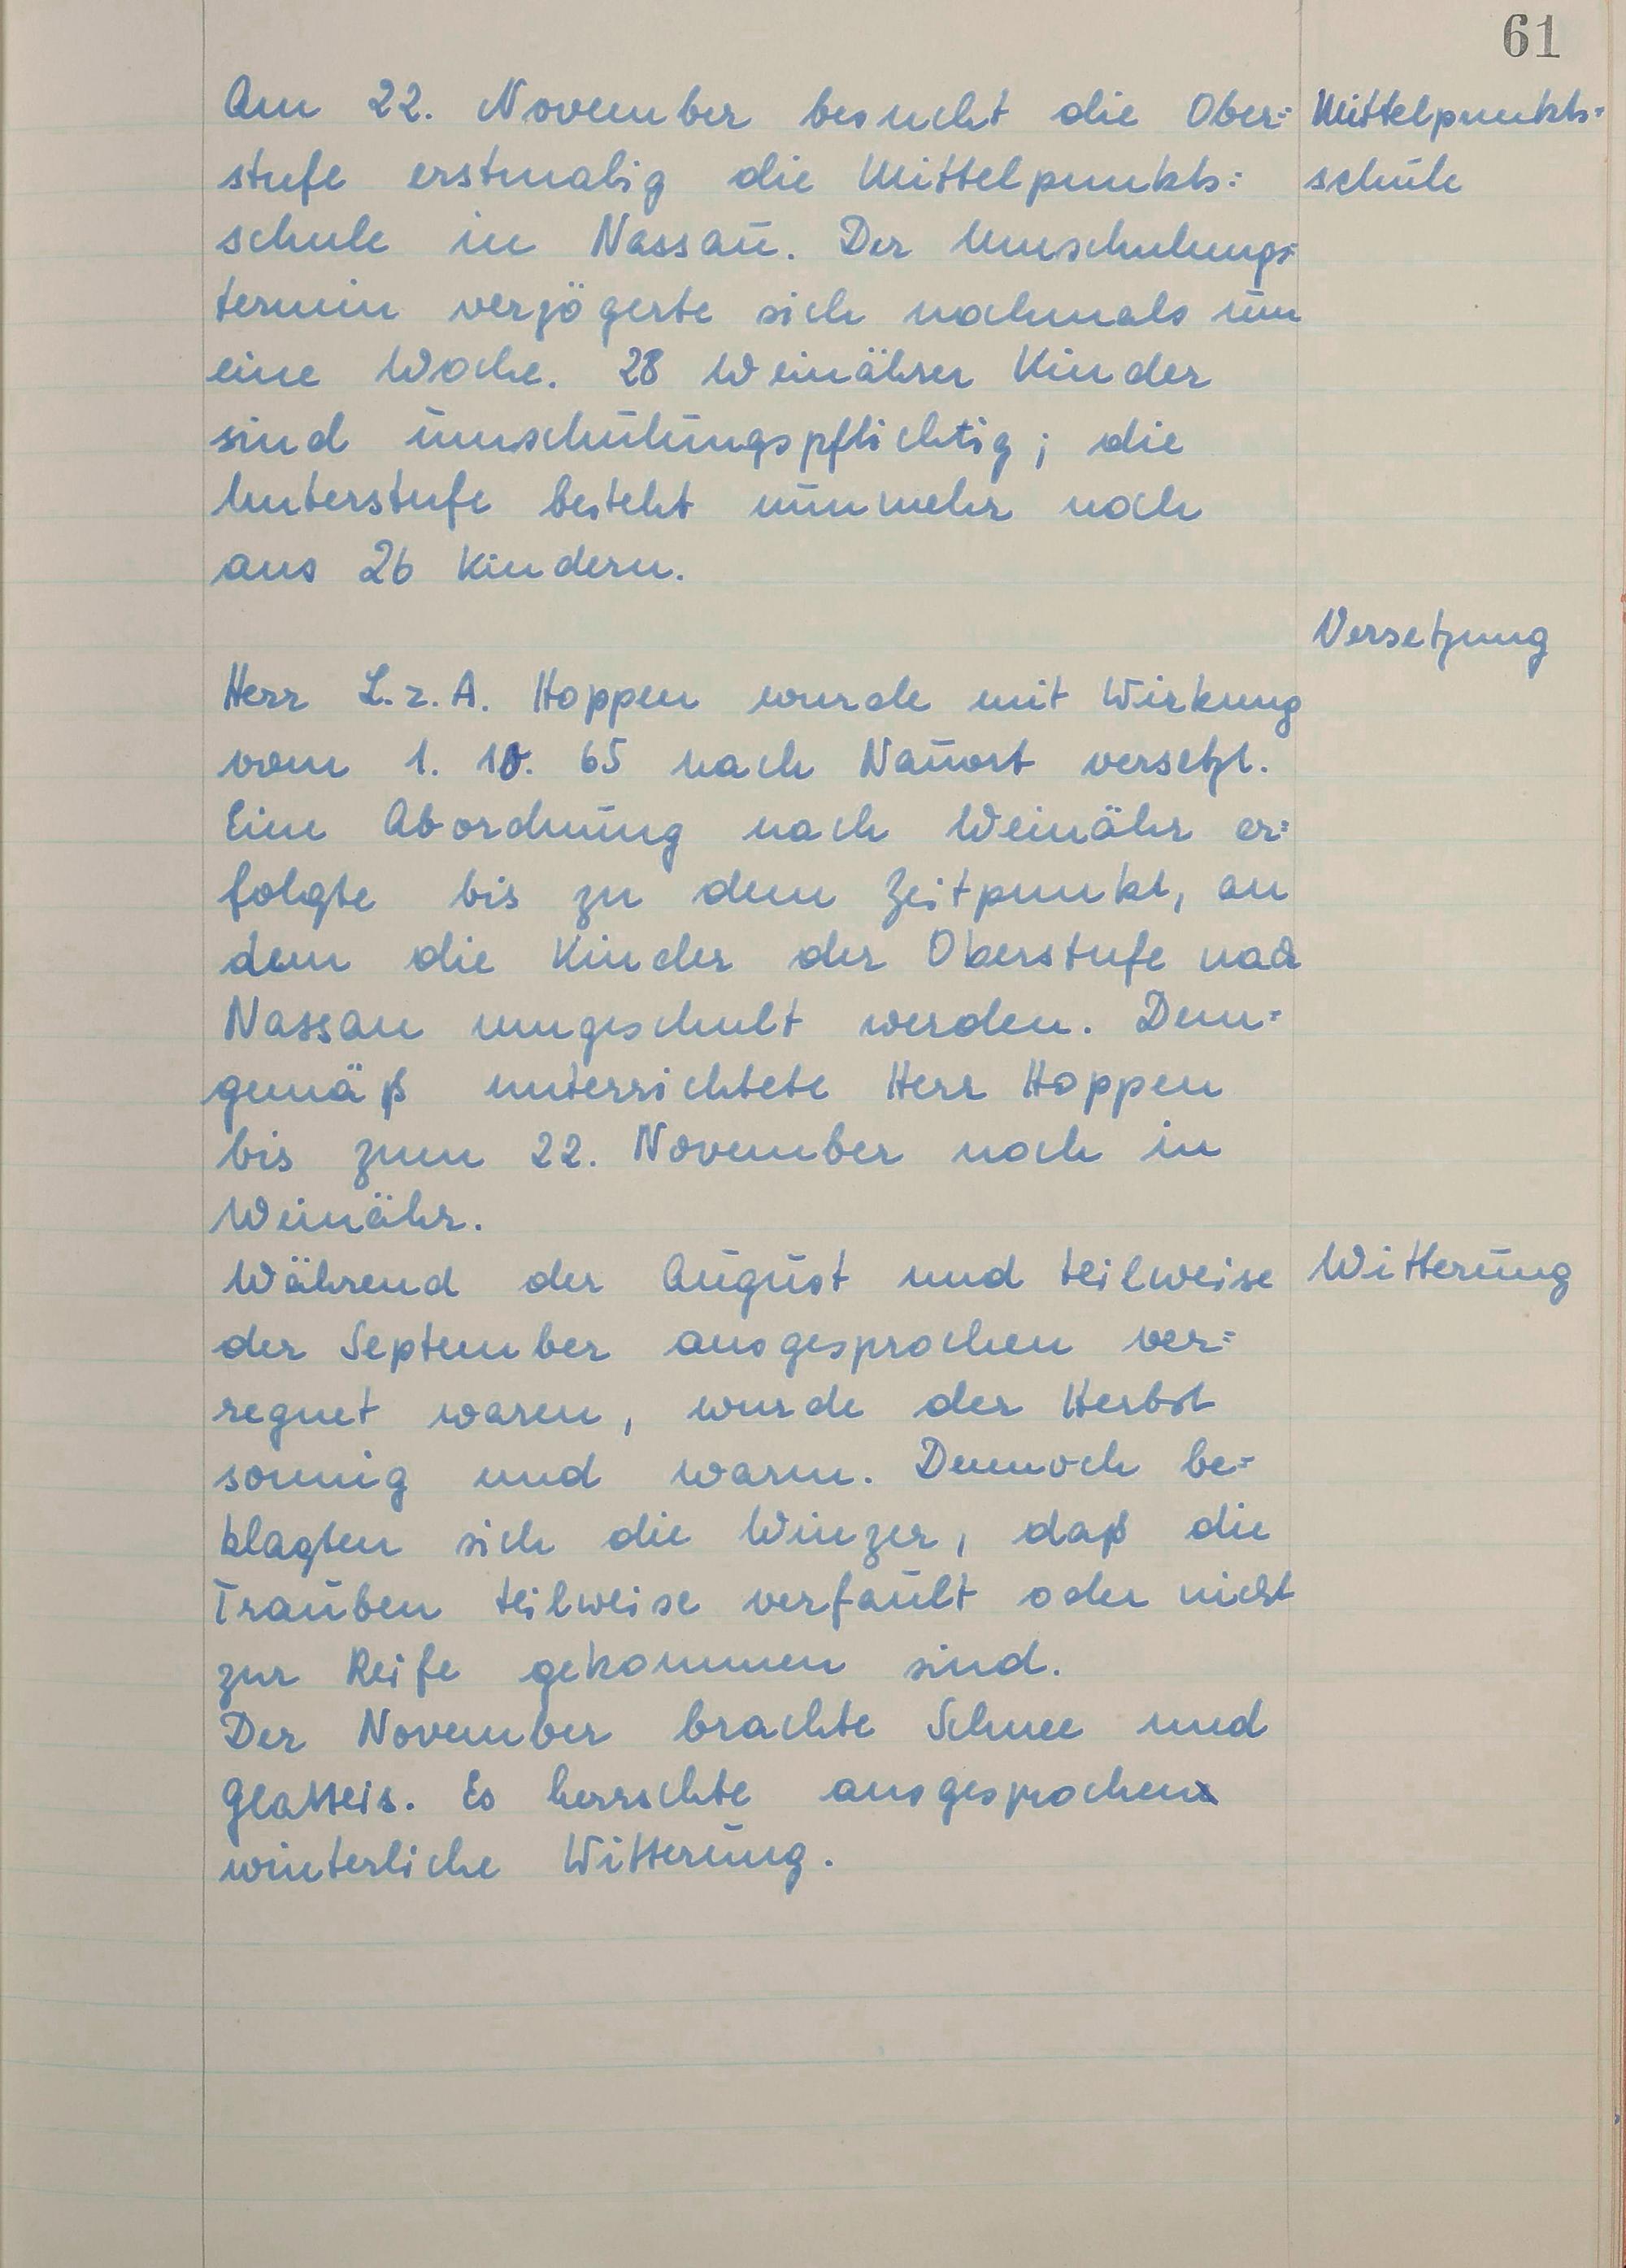 61
Am 22. November besucht die Ober=
stufe erstmalig die Mittelpunkts=
schule in Nassau. Der Umschulungs=
termin verzögerte sich nochmals um
eine Woche. 28 Weinährer Kinder
sind umschulungspflichtig; die
Unterstufe besteht nunmehr noch
aus 26 Kindern.
Mittelpunkts=
schule
Versetzung
Herr L.z.A. Hoppen wurde mit Wirkung
vom 1. 10. 65 nach Nauort versetzt.
Eine Abordnung nach Weinähr er=
folgte bis zu dem Zeitpunkt, an
dem die Kinder der Oberstufe nach
Nassau umgeschult werden. Dem=
gemäß unterrichtete Herr Hoppen
bis zum 22. November noch in
Weinähr.
Während der August und teilweise
der September ausgesprochen ver=
regnet waren, wurde der Herbst
sonnig und warm. Dennoch be=
klagten sich die Winzer, daß die
Trauben teilweise verfault oder nicht
zur Reife gekommen sind.
Der November brachte Schnee und
Glatteis. Es herrschte ausgesprochen
winterliche Witterung.
Witterung